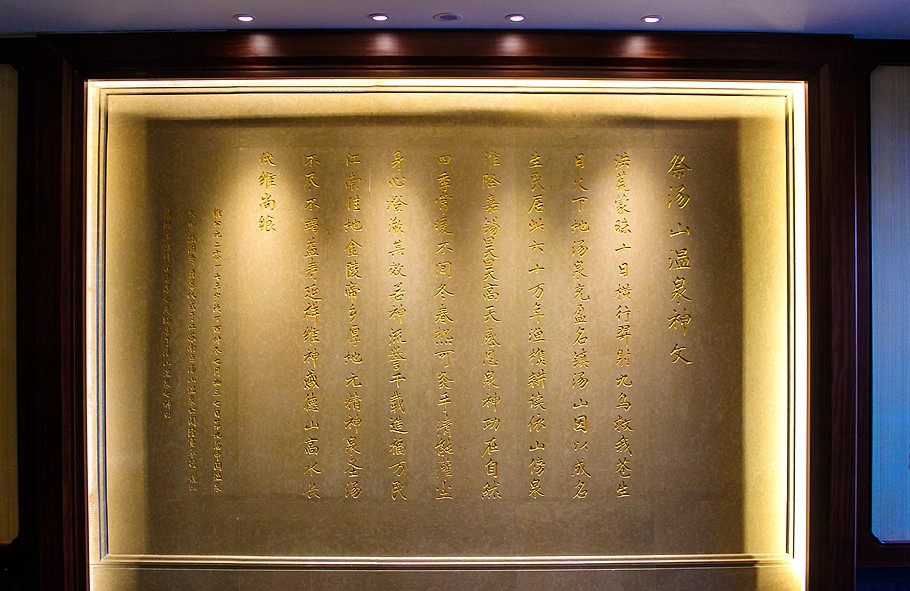 祭汤山温泉神文
洪荒蒙昧十日横行羿射九乌救我苍生
日火下地汤泉充盈名镇汤山因以成名
生民居此六十万年渔樵耕读依山傍泉
惟降嘉汤昊天高天感恩泉神功在自然
四季常暖不问冬春热可灸手清能濯尘
身心澄澈其效若神流誉千载造福万民
江南佳地金陵帝乡厚地元精神泉圣汤
不尽不竭益寿延祥维神威德山高水长
伏维尚飨